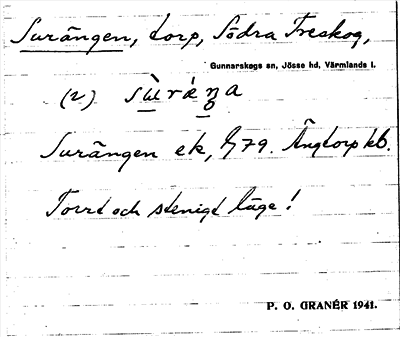 Surängen, torp, Södra Treskog,
Gunnarskogs sn, Jösse hd, Värmlands l.
(2)
Surängen ek, G79. Ängtorp kb.
Torrt och stenigt läge!
P. O. GRANÉR 1941.